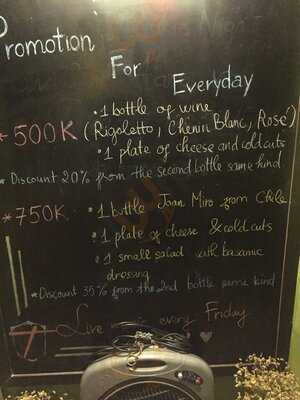 Promotion
For
Everyday
* 500K
• 1 bottle of wine
(Rigoletto, Chenin Blanc, Rosé)
• 1 plate of cheese and coldcuts
* Discount 20% from the second bottle same kind
* 750K
• 1 bottle Joan Miro from Chile
• 1 plate of cheese & cold cuts
• 1 small salad with balsamic
dressing
* Discount 35% from the 2nd bottle same kind
Live every Friday